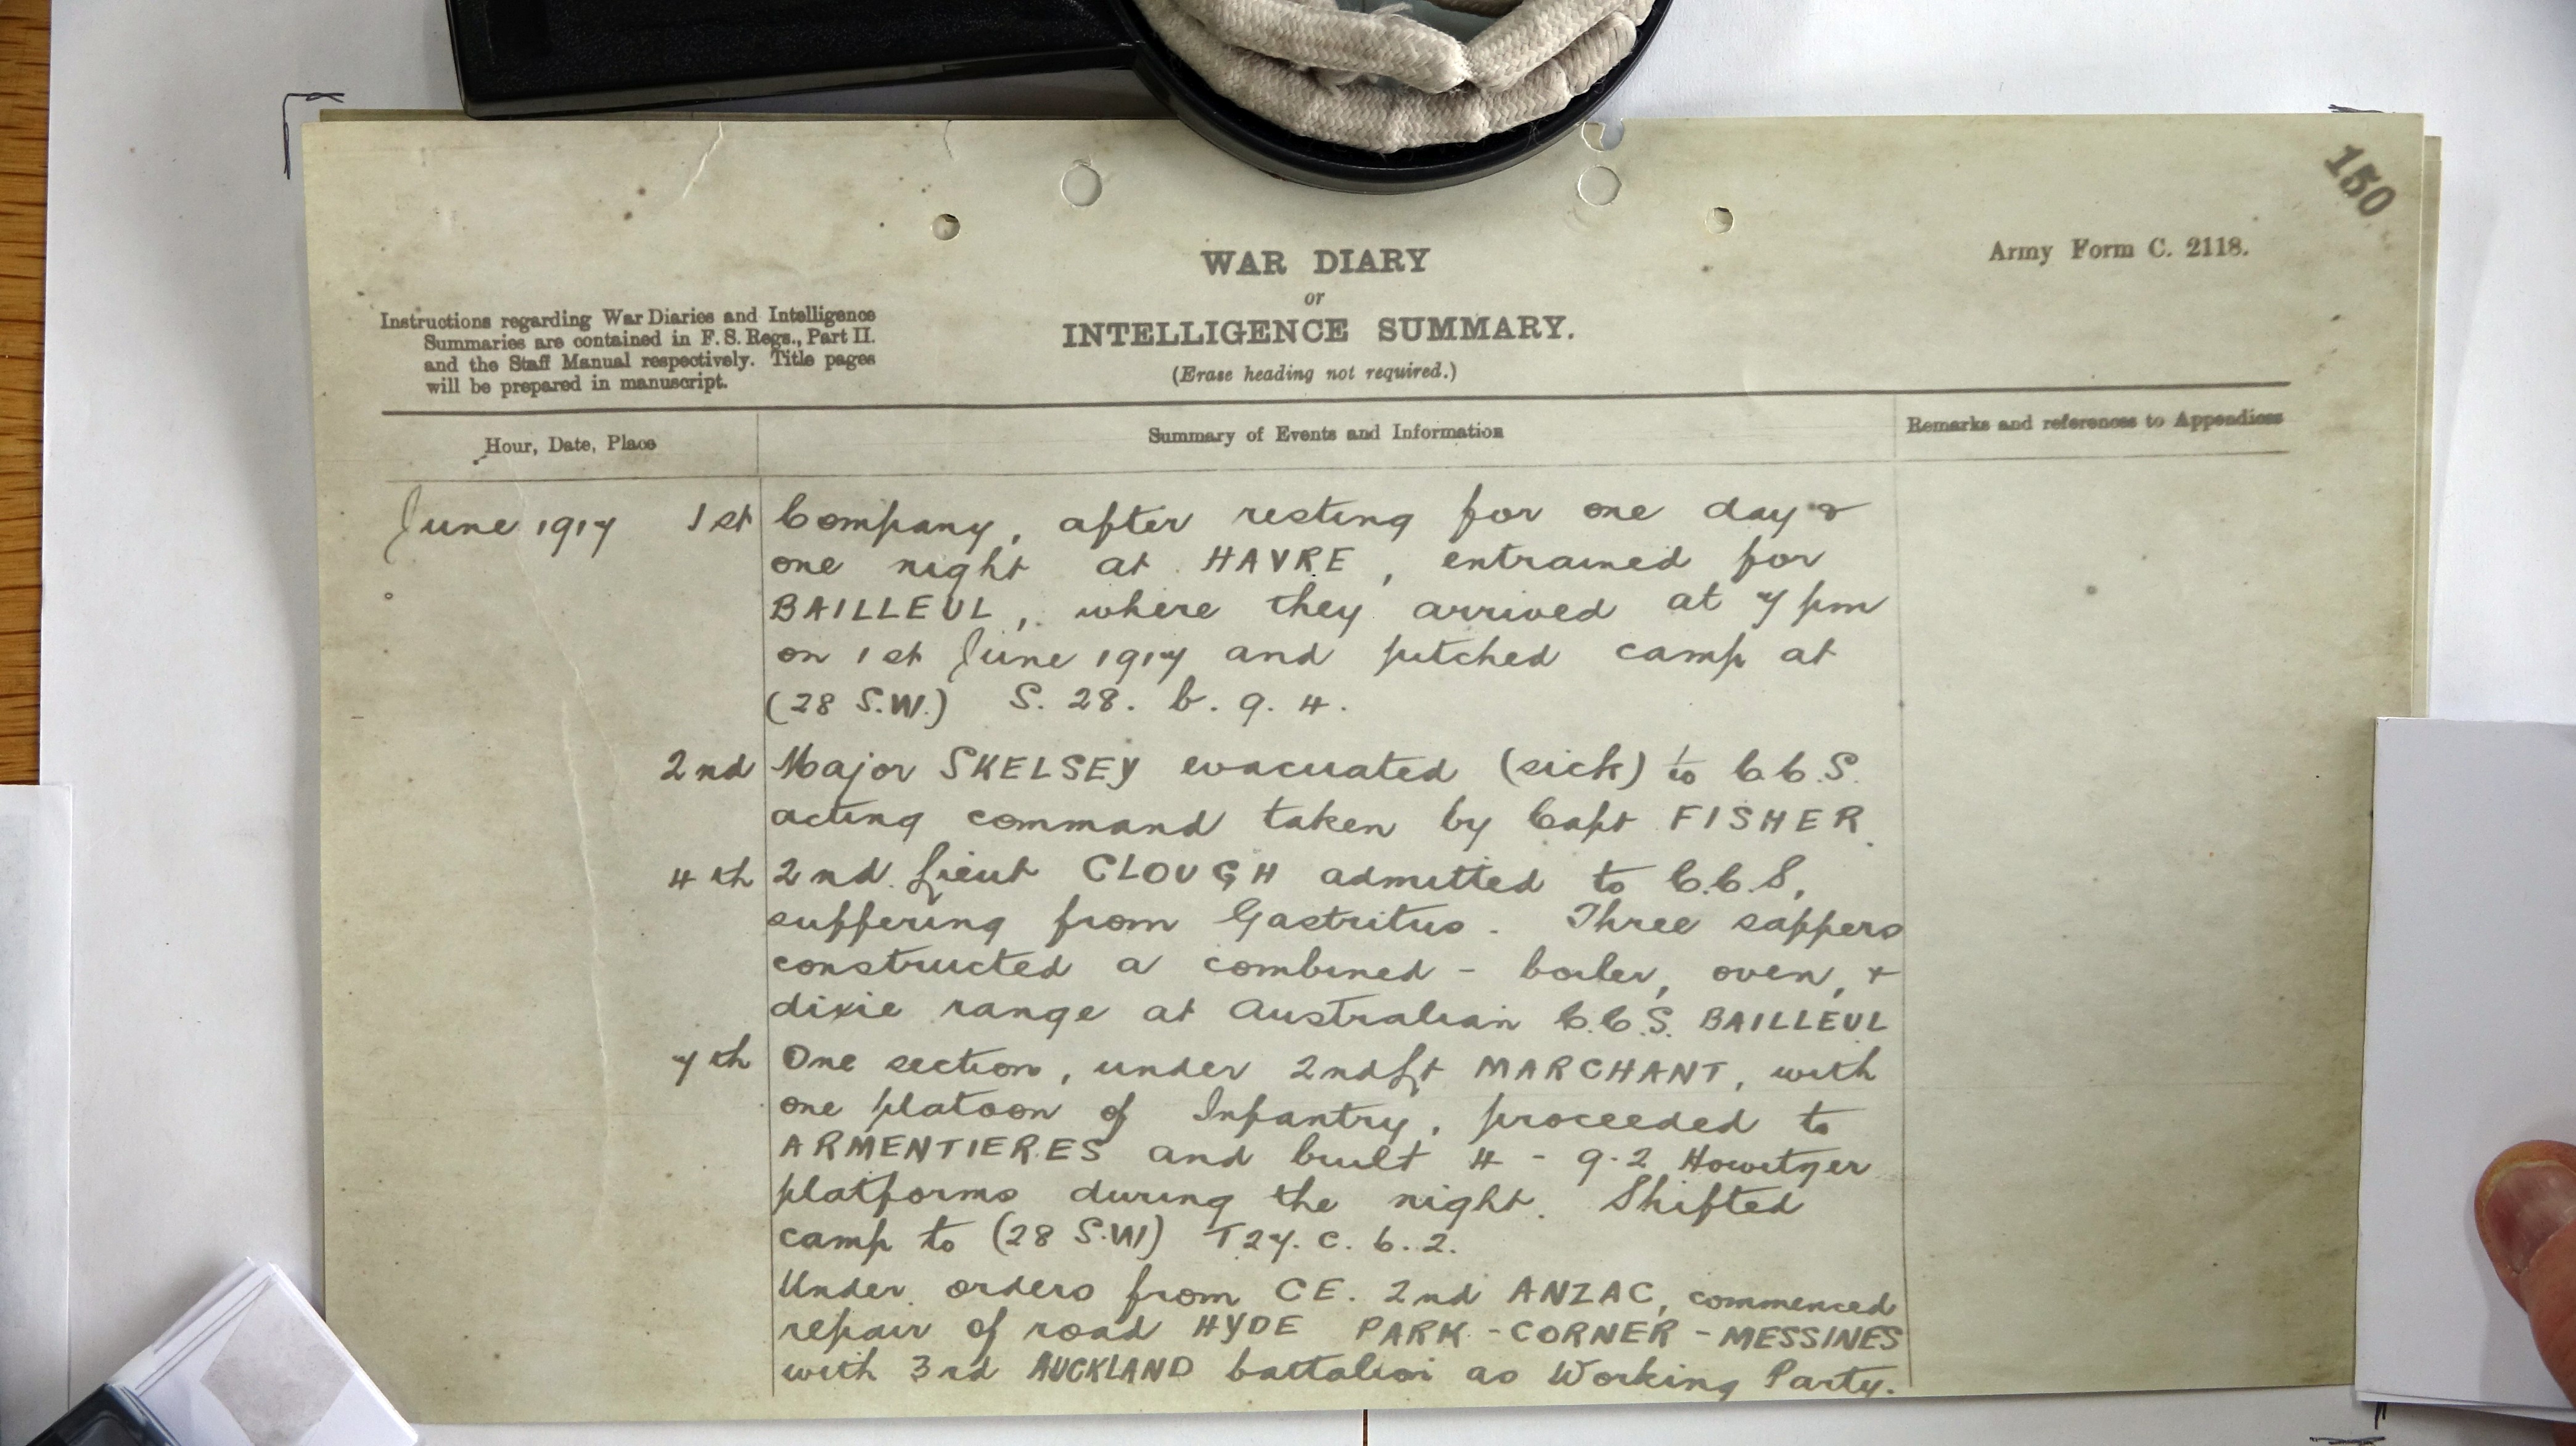 150
Army Form C. 2118.
WAR DIARY
or
INTELLIGENCE SUMMARY.
(Erase heading not required.)
Instructions regarding War Diaries and Intelligence
Summaries are contained in F. S. Regs., Part II.
and the Staff Manual respectively. Title pages
will be prepared in manuscript.
Hour, Date, Place
Summary of Events and Information
Remarks and references to Appendices
June 1917 1st Company, after resting for one day &
one night at HAVRE, entrained for
BAILLEUL, where they arrived at 7 pm
on 1st June 1917 and pitched camp at
(28 S.W.) S. 28. b. 9. 4.
2nd Major SKELSEY evacuated (sick) to C.C.S.
acting command taken by Capt FISHER.
4th 2nd. Lieut CLOUGH admitted to C.C.S,
suffering from Gastritus. Three sappers
constructed a combined - boiler, oven, +
dixie range at Australian C.C.S. BAILLEUL
7th One section, under 2nd Lt MARCHANT, with
one platoon of Infantry, proceeded to
ARMENTIERES and built 4 - 9.2 Howitzer
platforms during the night. Shifted
camp to (28 S.W) T27. c. 6. 2.
Under orders from CE. 2nd ANZAC, commenced
repair of road HYDE PARK - CORNER - MESSINES
with 3rd AUCKLAND battalion as Working Party.